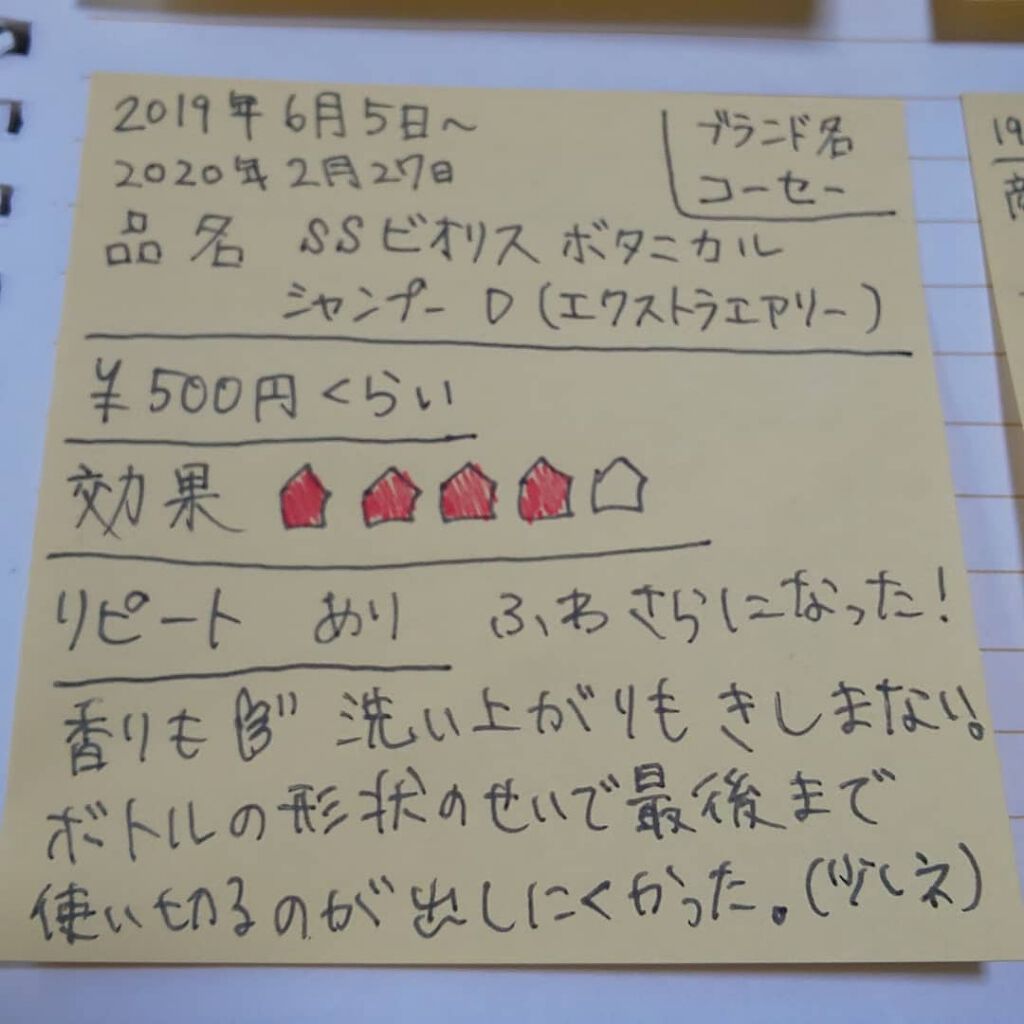 2019年6月5日～
2020年2月27日
ブランド名
コーセー
品名 SSビオリス ボタニカル
シャンプー D (エクストラエアリー)
¥500円くらい
効果
リピート あり ふわさらになった!
香りも 洗い上がりもきしまない。
ボトルの形状のせいで最後まで
使い切るのが出しにくかった。
19